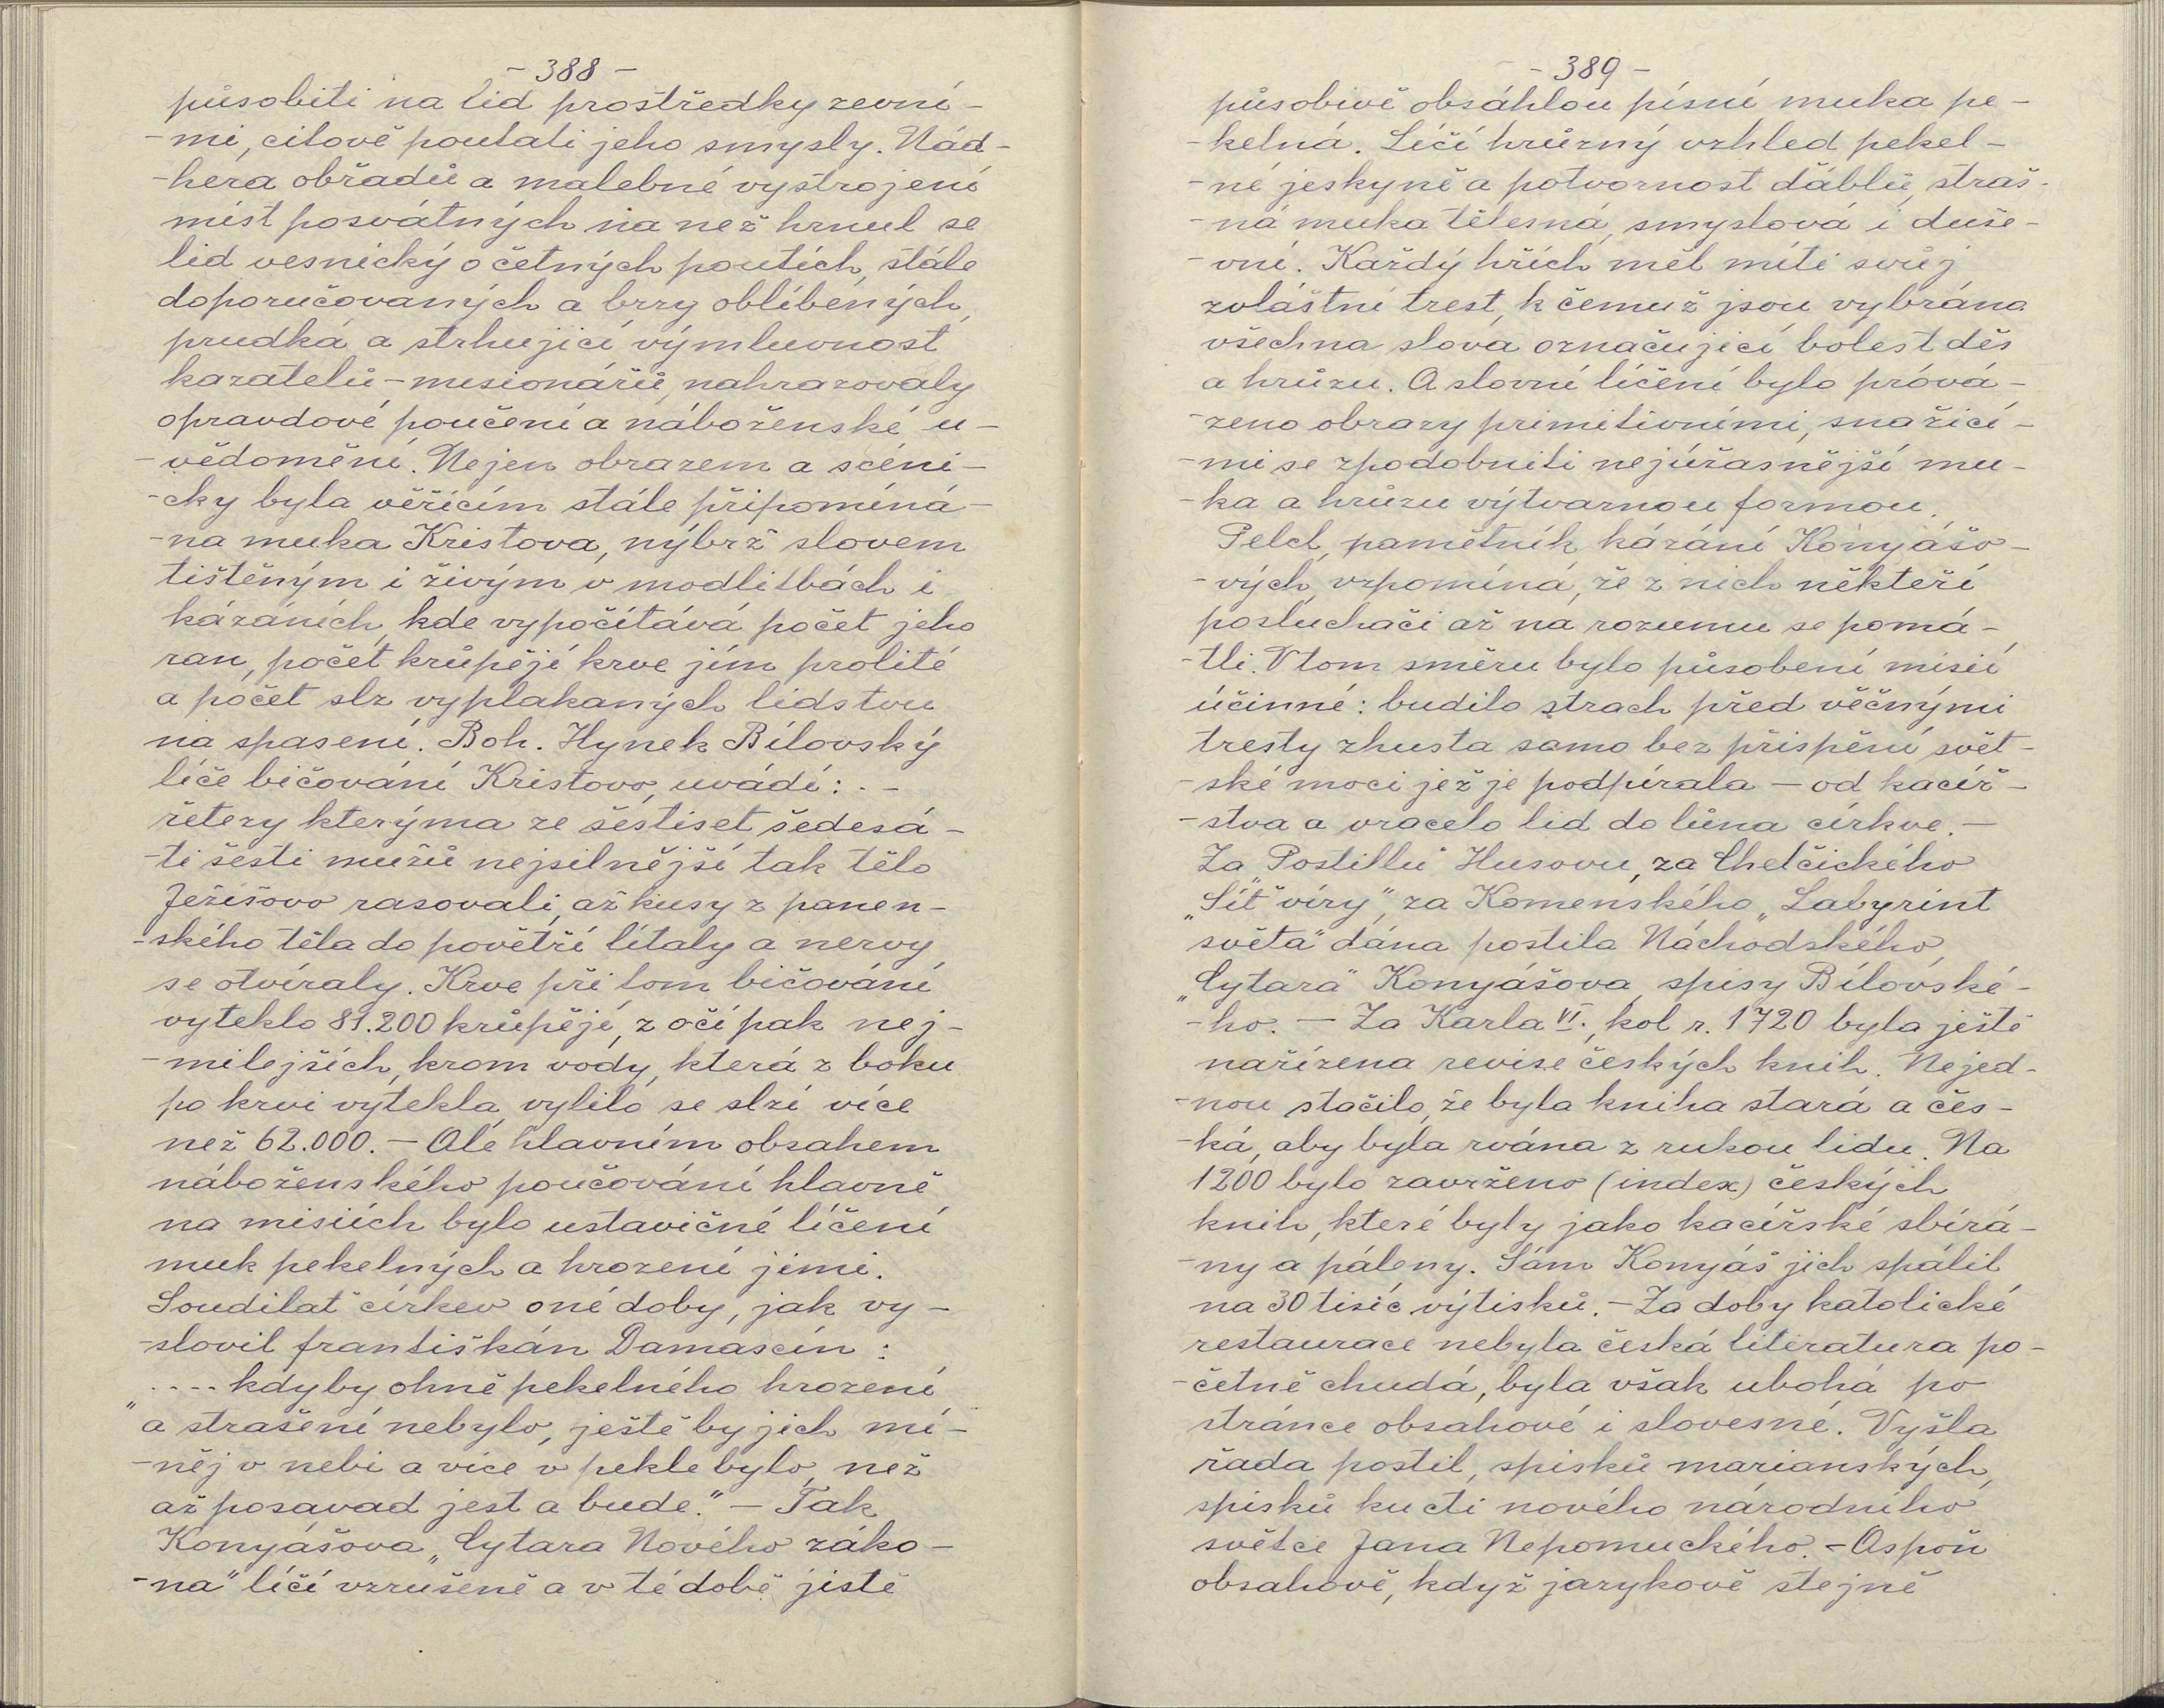 - 388 -
působiti na lid prostředky zevní-
-mi, citově poutati jeho smysly. Nád-
-hera obřadů a malebné vystrojení
míst posvátných na než hrnul se
lid vesnický o četných poutích, stále
doporučovaných a brzy oblíbených,
prudká a strhující výmluvnost
kazatelů-misionářů, nahrazovaly
opravdové poučení a náboženské u-
-vědomění. Nejen obrazem a scéni-
-cky byla věřícím stále připomíná-
-na muka Kristova, nýbrž slovem
tištěným i živým v modlitbách i
kázáních, kde vypočítává počet jeho
ran, počet krůpějí krve jím prolité
a počet slz vyplakaných lidstvu
na spasení. Boh. Hynek Bílovský
líče bičování Kristovo, uvádí: . -
řetezy kterýma ze šestiset šedesá-
-ti šesti mužů nejsilnější tak tělo
Ježíšovo rasovali, až kusy z panen-
-ského těla do povětří lítaly a nervy
se otvíraly. Krve při tom bičování
vyteklo 81.200 krůpějí, z očí pak nej-
-milejších, krom vody, která z boku
po krvi vytekla, vylilo se slzí více
než 62.000. - Ale hlavním obsahem
náboženského poučování hlavně
na misiích bylo ustavičné líčení
muk pekelných a hrození jimi.
Soudilať církev oné doby, jak vy-
-slovil františkán Damascín:
" .... kdyby ohně pekelného hrození
a strašení nebylo, ještě by jich mí-
-něj v nebi a více v pekle bylo, než
až posavad jest a bude." - Tak
Konyášova „Cytara Nového záko-
-na" líčí vzrušeně a v té době jistě
- 389 -
působivě obsáhlou písní muka pe-
-kelná. Líčí hrůzný vzhled pekel-
-né jeskyně a potvornost ďáblů, straš-
-ná muka tělesná, smyslová i duše-
-vní. Každý hřích měl míti svůj
zvláštní trest, k čemuž jsou vybrána
všechna slova označující bolest děs
a hrůzu. A slovní líčení bylo prová-
-zeno obrazy primitivními, snažící-
-mi se zpodobniti nejúžasnější mu-
-ka a hrůzu výtvarnou formou.
Pelcl, pamětník kázání Konyášo-
-vých, vzpomíná, že z nich někteří
posluchači až na rozumu se pomá-
-tli. V tom směru bylo působení misií
účinné: budilo strach před věčnými
tresty zhusta samo bez přispění svět-
-ské moci jež je podpírala - od kacíř-
-stva a vracelo lid do lůna církve. -
Za „Postillu" Husovu, za Chelčického
„Síť víry", za Komenského „Labyrint
světa" dána postila Náchodského,
„Cytara" Konyášova, spisy Bílovské-
-ho. - Za Karla VI., kol r. 1720 byla ještě
nařízena revise českých knih. Nejed-
-nou stačilo, že byla kniha stará a čes-
-ká, aby byla rvána z rukou lidu. Na
1200 bylo zavrženo (index) českých
knih, které byly jako kacířské sbírá-
-ny a páleny. Sám Konyáš jich spálil
na 30 tisíc výtisků. - Za doby katolické
restaurace nebyla česká literatura po-
-četně chudá, byla však ubohá po
stránce obsahové i slovesné. Vyšla
řada postil, spisků marianských,
spisků ku cti nového národního
světce Jana Nepomuckého. - Aspoň
obsahově, když jazykově stejně